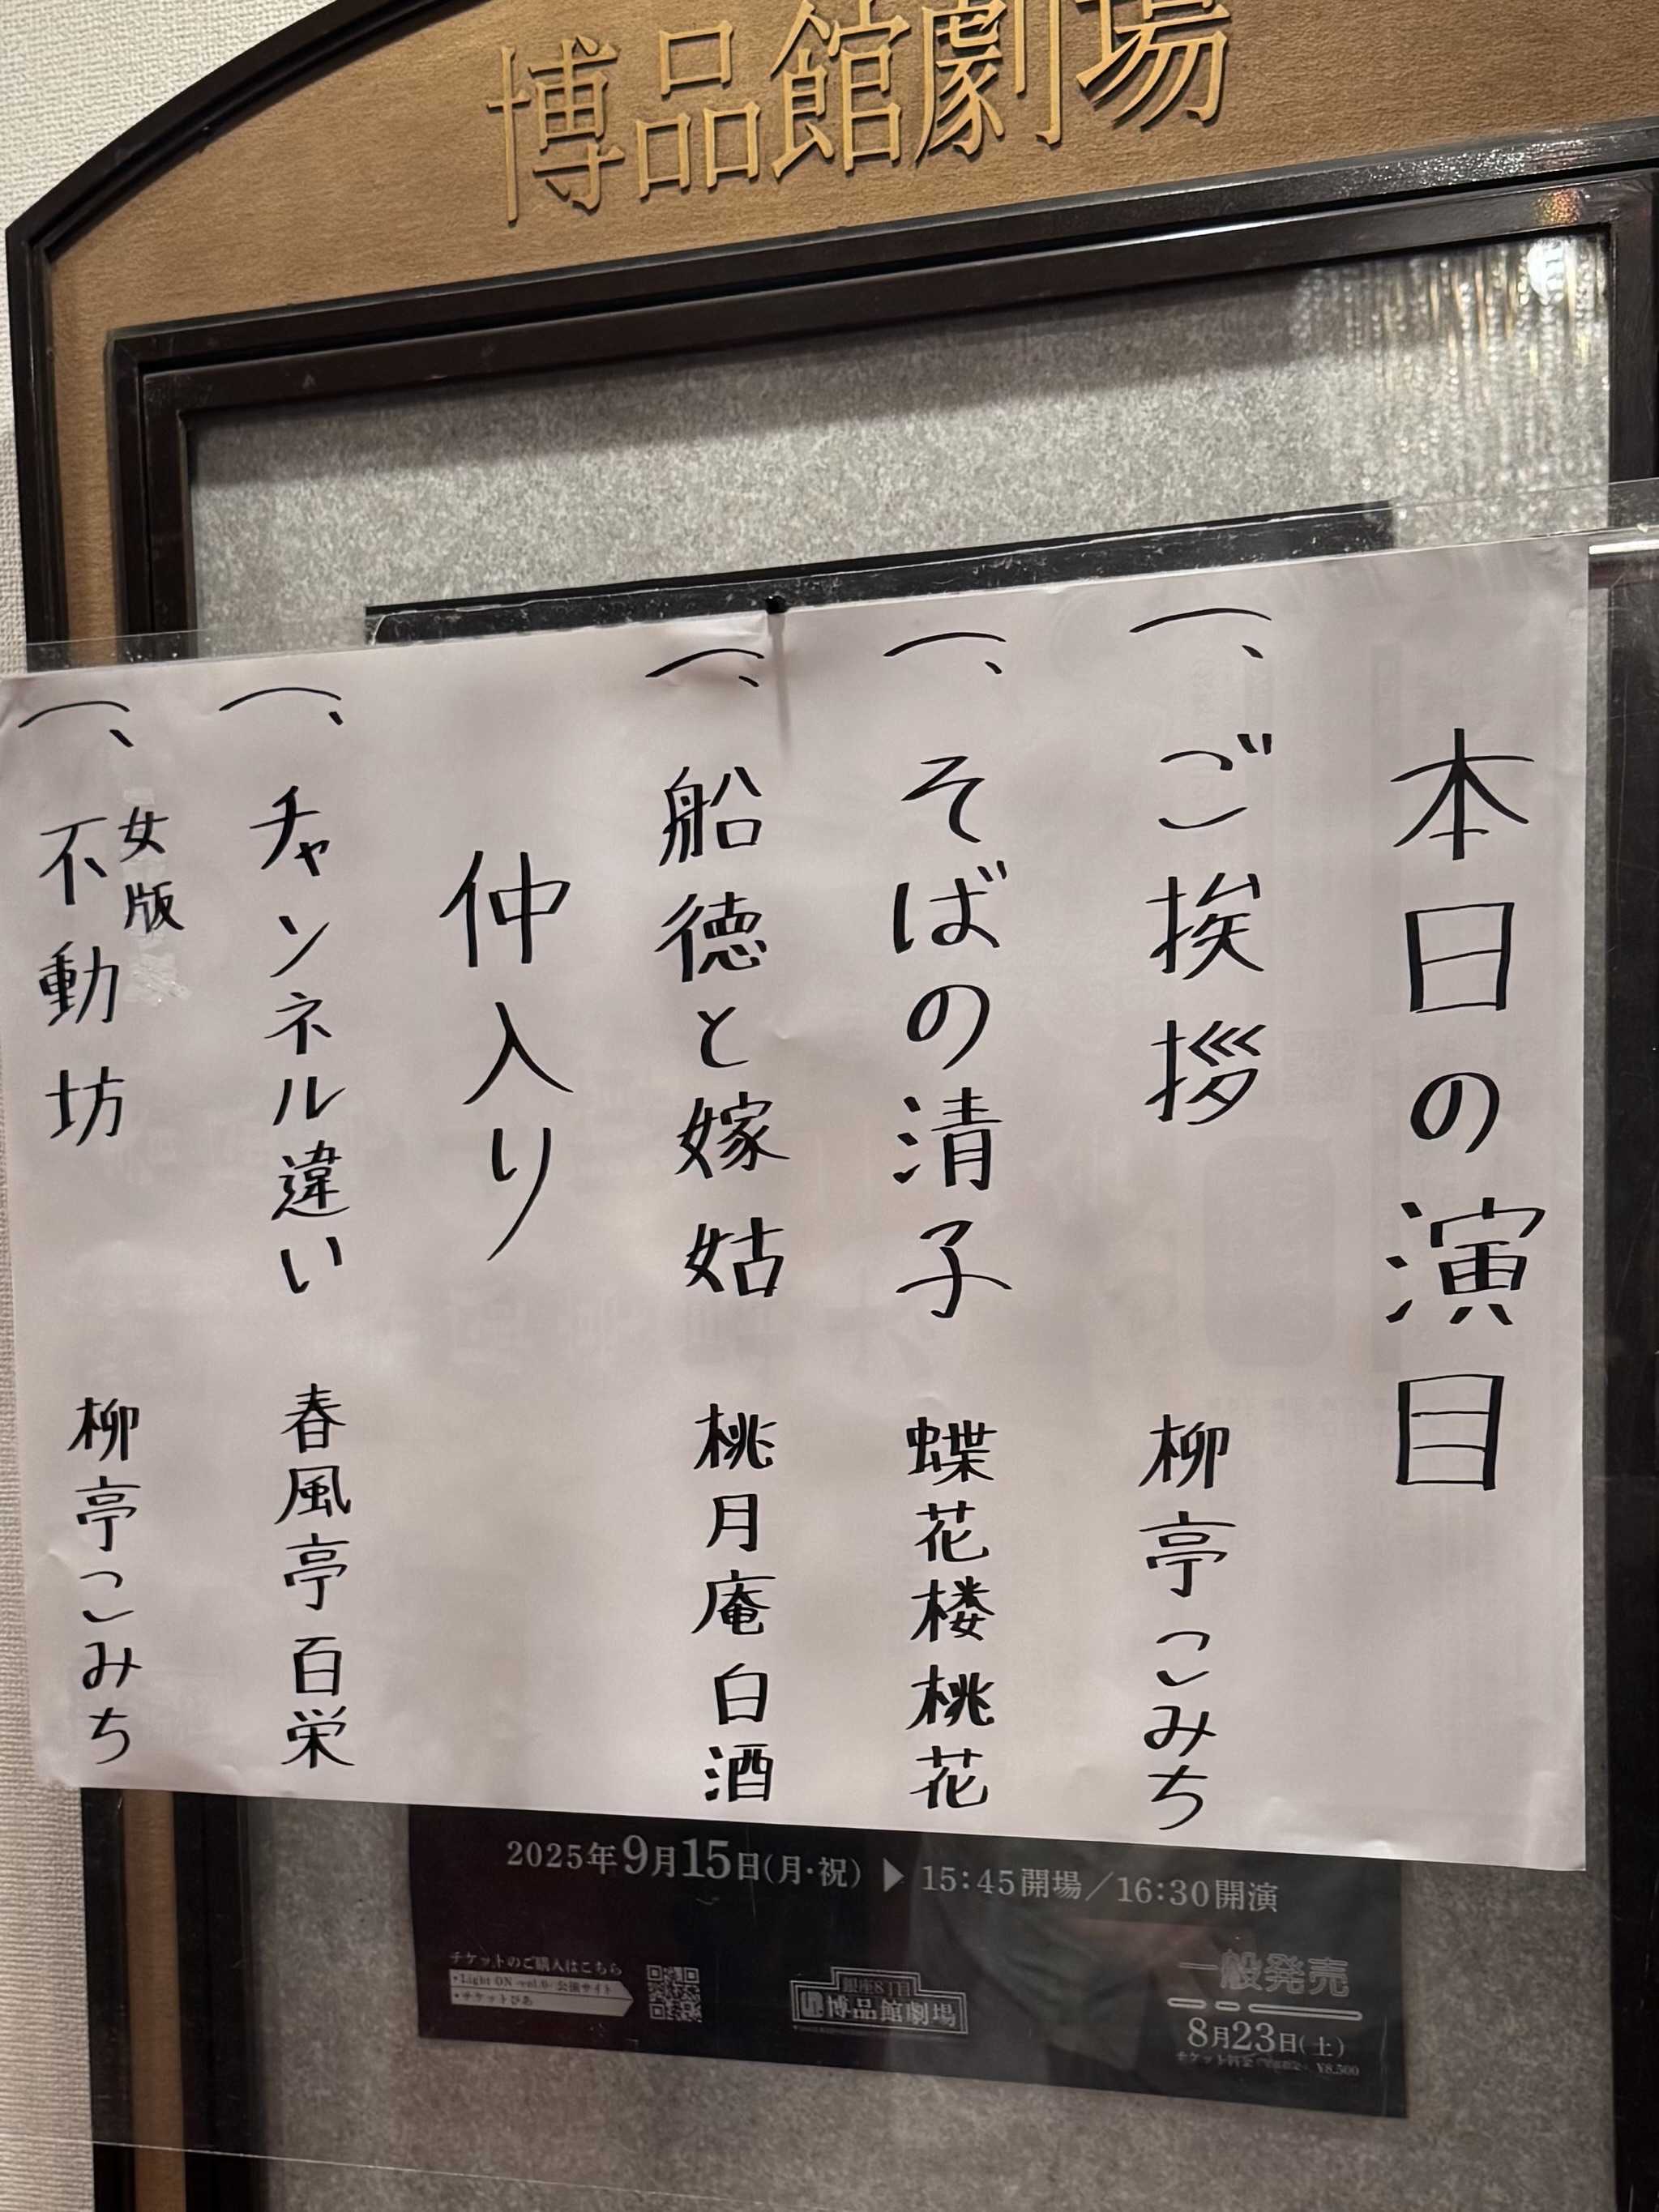 博品館劇場
本日の演目
一、ご挨拶 柳亭こみち
一、そばの清子 蝶花楼桃花
一、船徳と嫁姑 桃月庵白酒
仲入り
一、チャンネル違い 春風亭百栄
一、女版 不動坊 柳亭こみち
2025年9月15日(月・祝) ▶ 15:45開場/16:30開演
チケットのご購入はこちら
・Light ON 公演サイト
・チケットぴあ
銀座8丁目
博品館劇場
一般発売
8月23日(土)
¥8,500